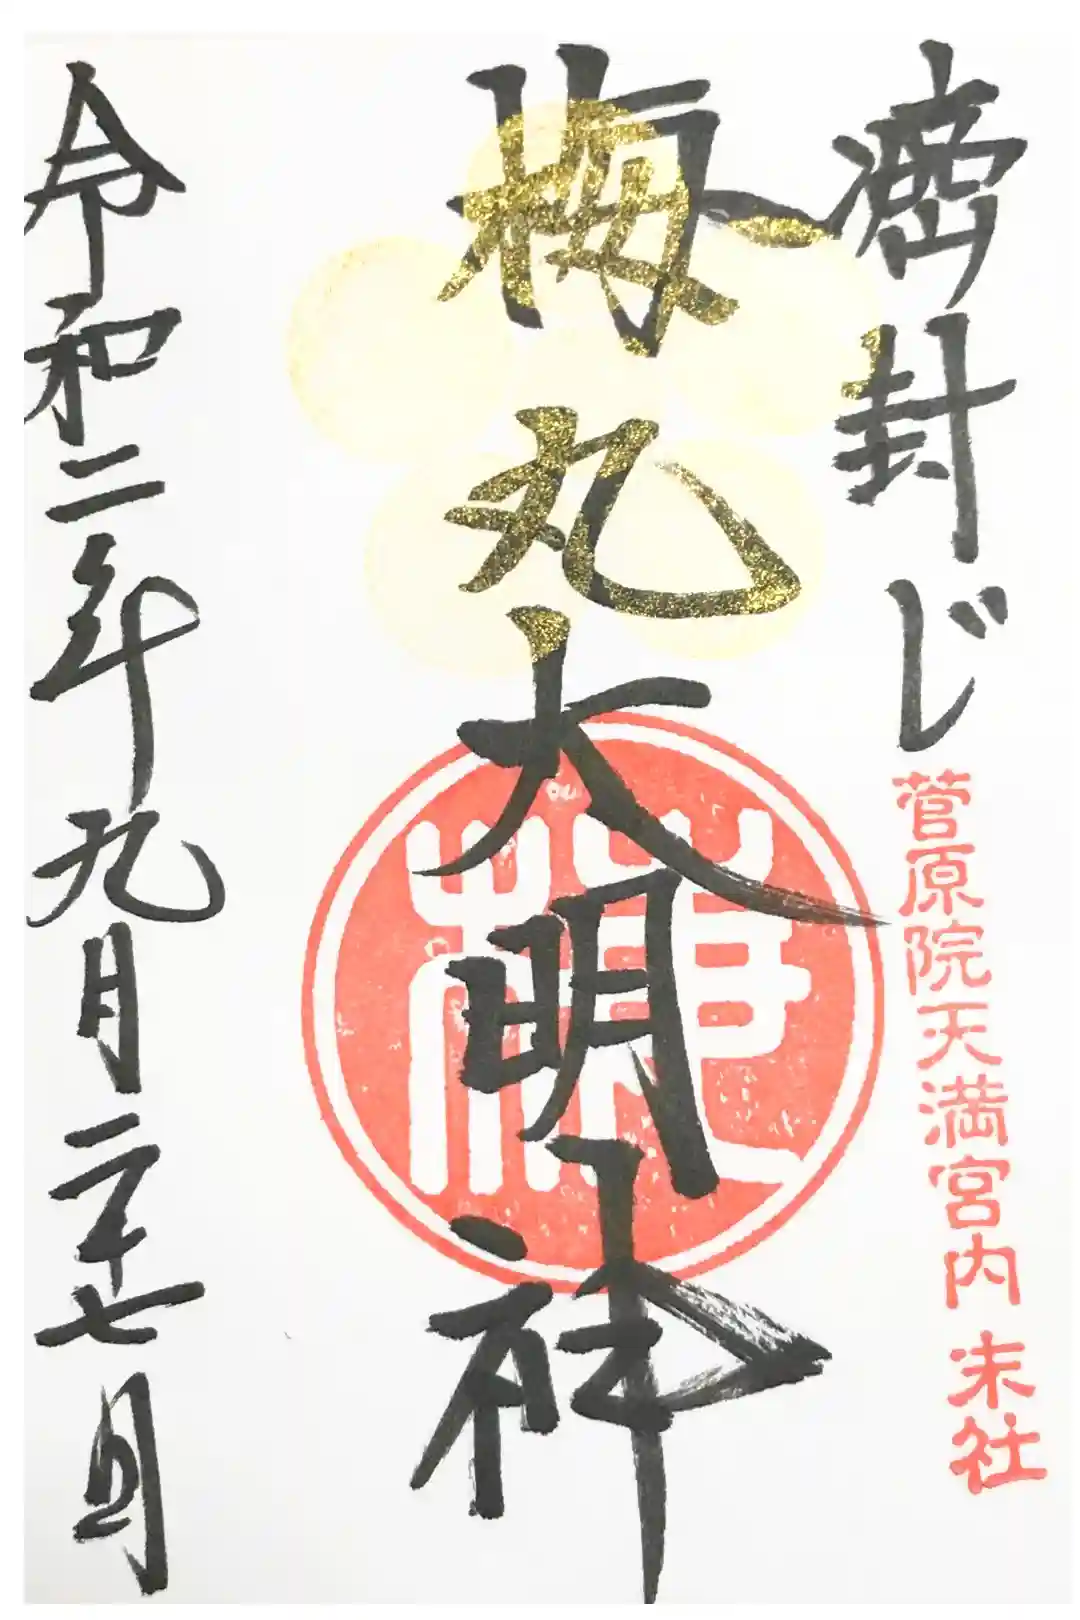 癌封じ
菅原院天満宮内 末社
梅丸大明神
令和二年九月二十七日